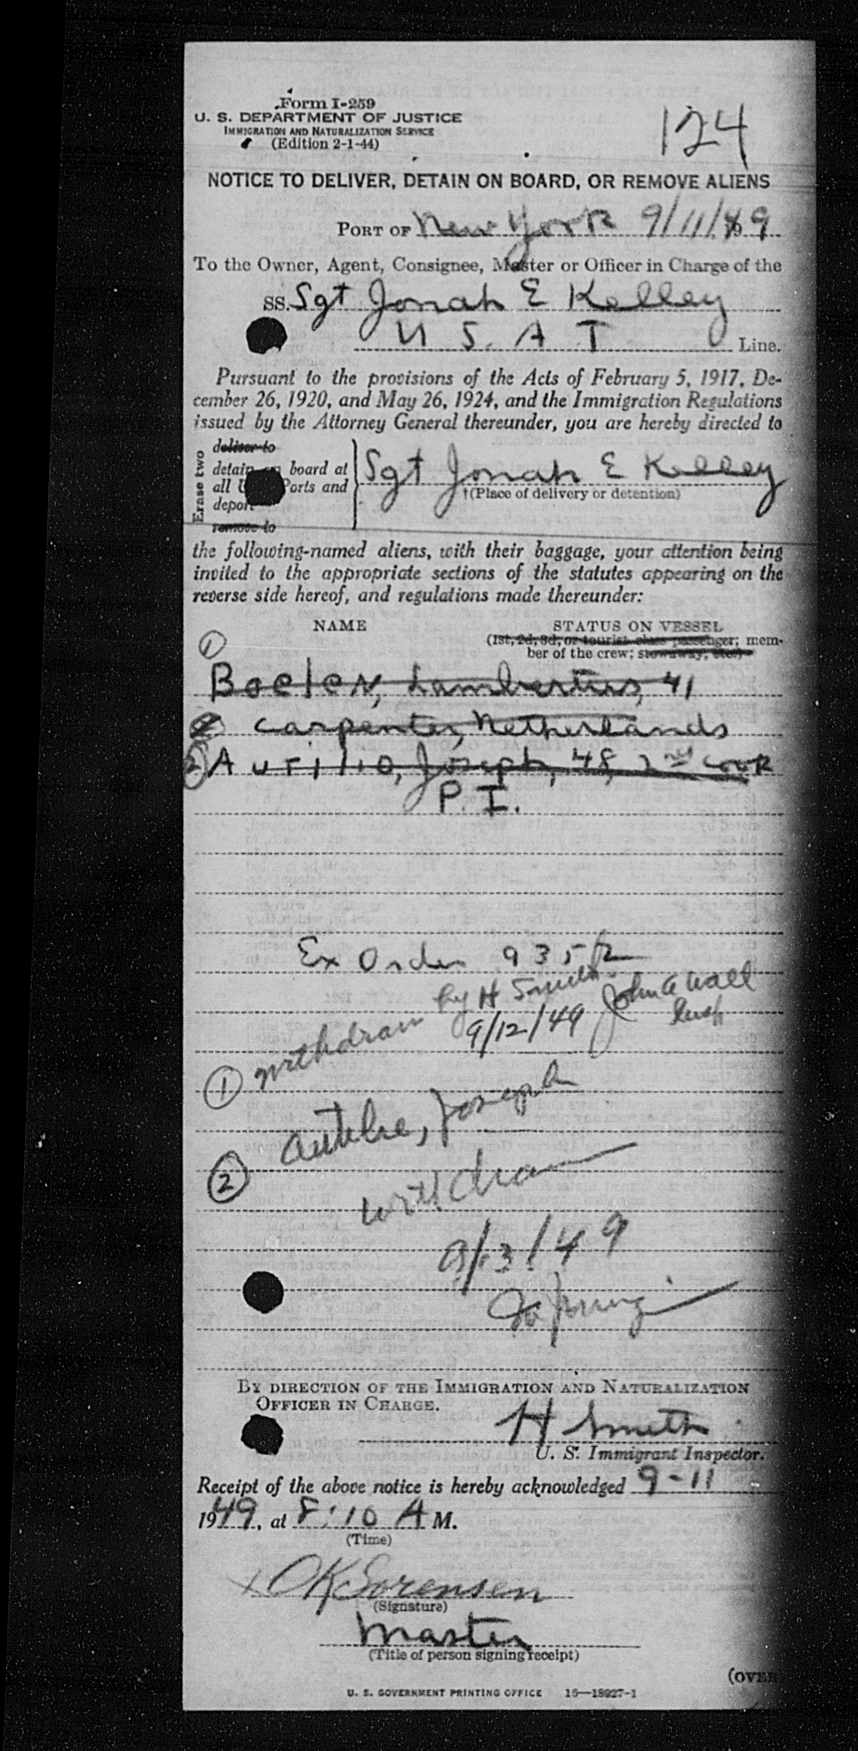 Form I-259
U. S. DEPARTMENT OF JUSTICE
IMMIGRATION AND NATURALIZATION SERVICE
(Edition 2-1-44)
124
NOTICE TO DELIVER, DETAIN ON BOARD, OR REMOVE ALIENS
PORT OF New York 9/11/49
To the Owner, Agent, Consignee, Master or Officer in Charge of the
SS. Sgt Jonah E Kelley
U S. A T Line.
Pursuant to the provisions of the Acts of February 5, 1917, De-
cember 26, 1920, and May 26, 1924, and the Immigration Regulations
issued by the Attorney General thereunder, you are hereby directed to
Erase two
deliver to
detain on board at
all Ports and
deport
remove to
Sgt Jonah E Kelley
†(Place of delivery or detention)
the following-named aliens, with their baggage, your attention being
invited to the appropriate sections of the statutes appearing on the
reverse side hereof, and regulations made thereunder:
NAME STATUS ON VESSEL
(1st, 2d, 3d, or tourist class passenger; mem-
ber of the crew; stowaway, etc.)
1
Boelen, Lambertus, 41
2 carpenter, Netherlands
2 Aurilio, Joseph, 48, 2nd cook
P. I.
Ex Order 9352
1 withdrawn by H Smith John A Wall
9/12/49 Insp
2 Joseph
withdrawn
9/13/49
BY DIRECTION OF THE IMMIGRATION AND NATURALIZATION
OFFICER IN CHARGE.
H Smith
U. S. Immigrant Inspector.
Receipt of the above notice is hereby acknowledged 9-11
1949, at 8:10 A M.
(Time)
x OK Sorensen
(Signature)
Master
(Title of person signing receipt)
(OVER
U. S. GOVERNMENT PRINTING OFFICE 16—18927-1